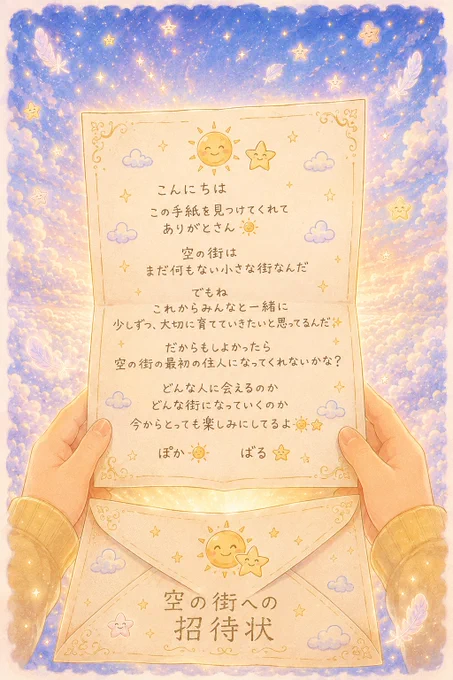 こんにちは
この手紙を見つけてくれて
ありがとさん
空の街は
まだ何もない小さな街なんだ
でもね
これからみんなと一緒に
少しずつ、大切に育てていきたいと思ってるんだ
だからもしよかったら
空の街の最初の住人になってくれないかな？
どんな人に会えるのか
どんな街になっていくのか
今からとっても楽しみにしてるよ
ぽか ぱる
空の街への
招待状